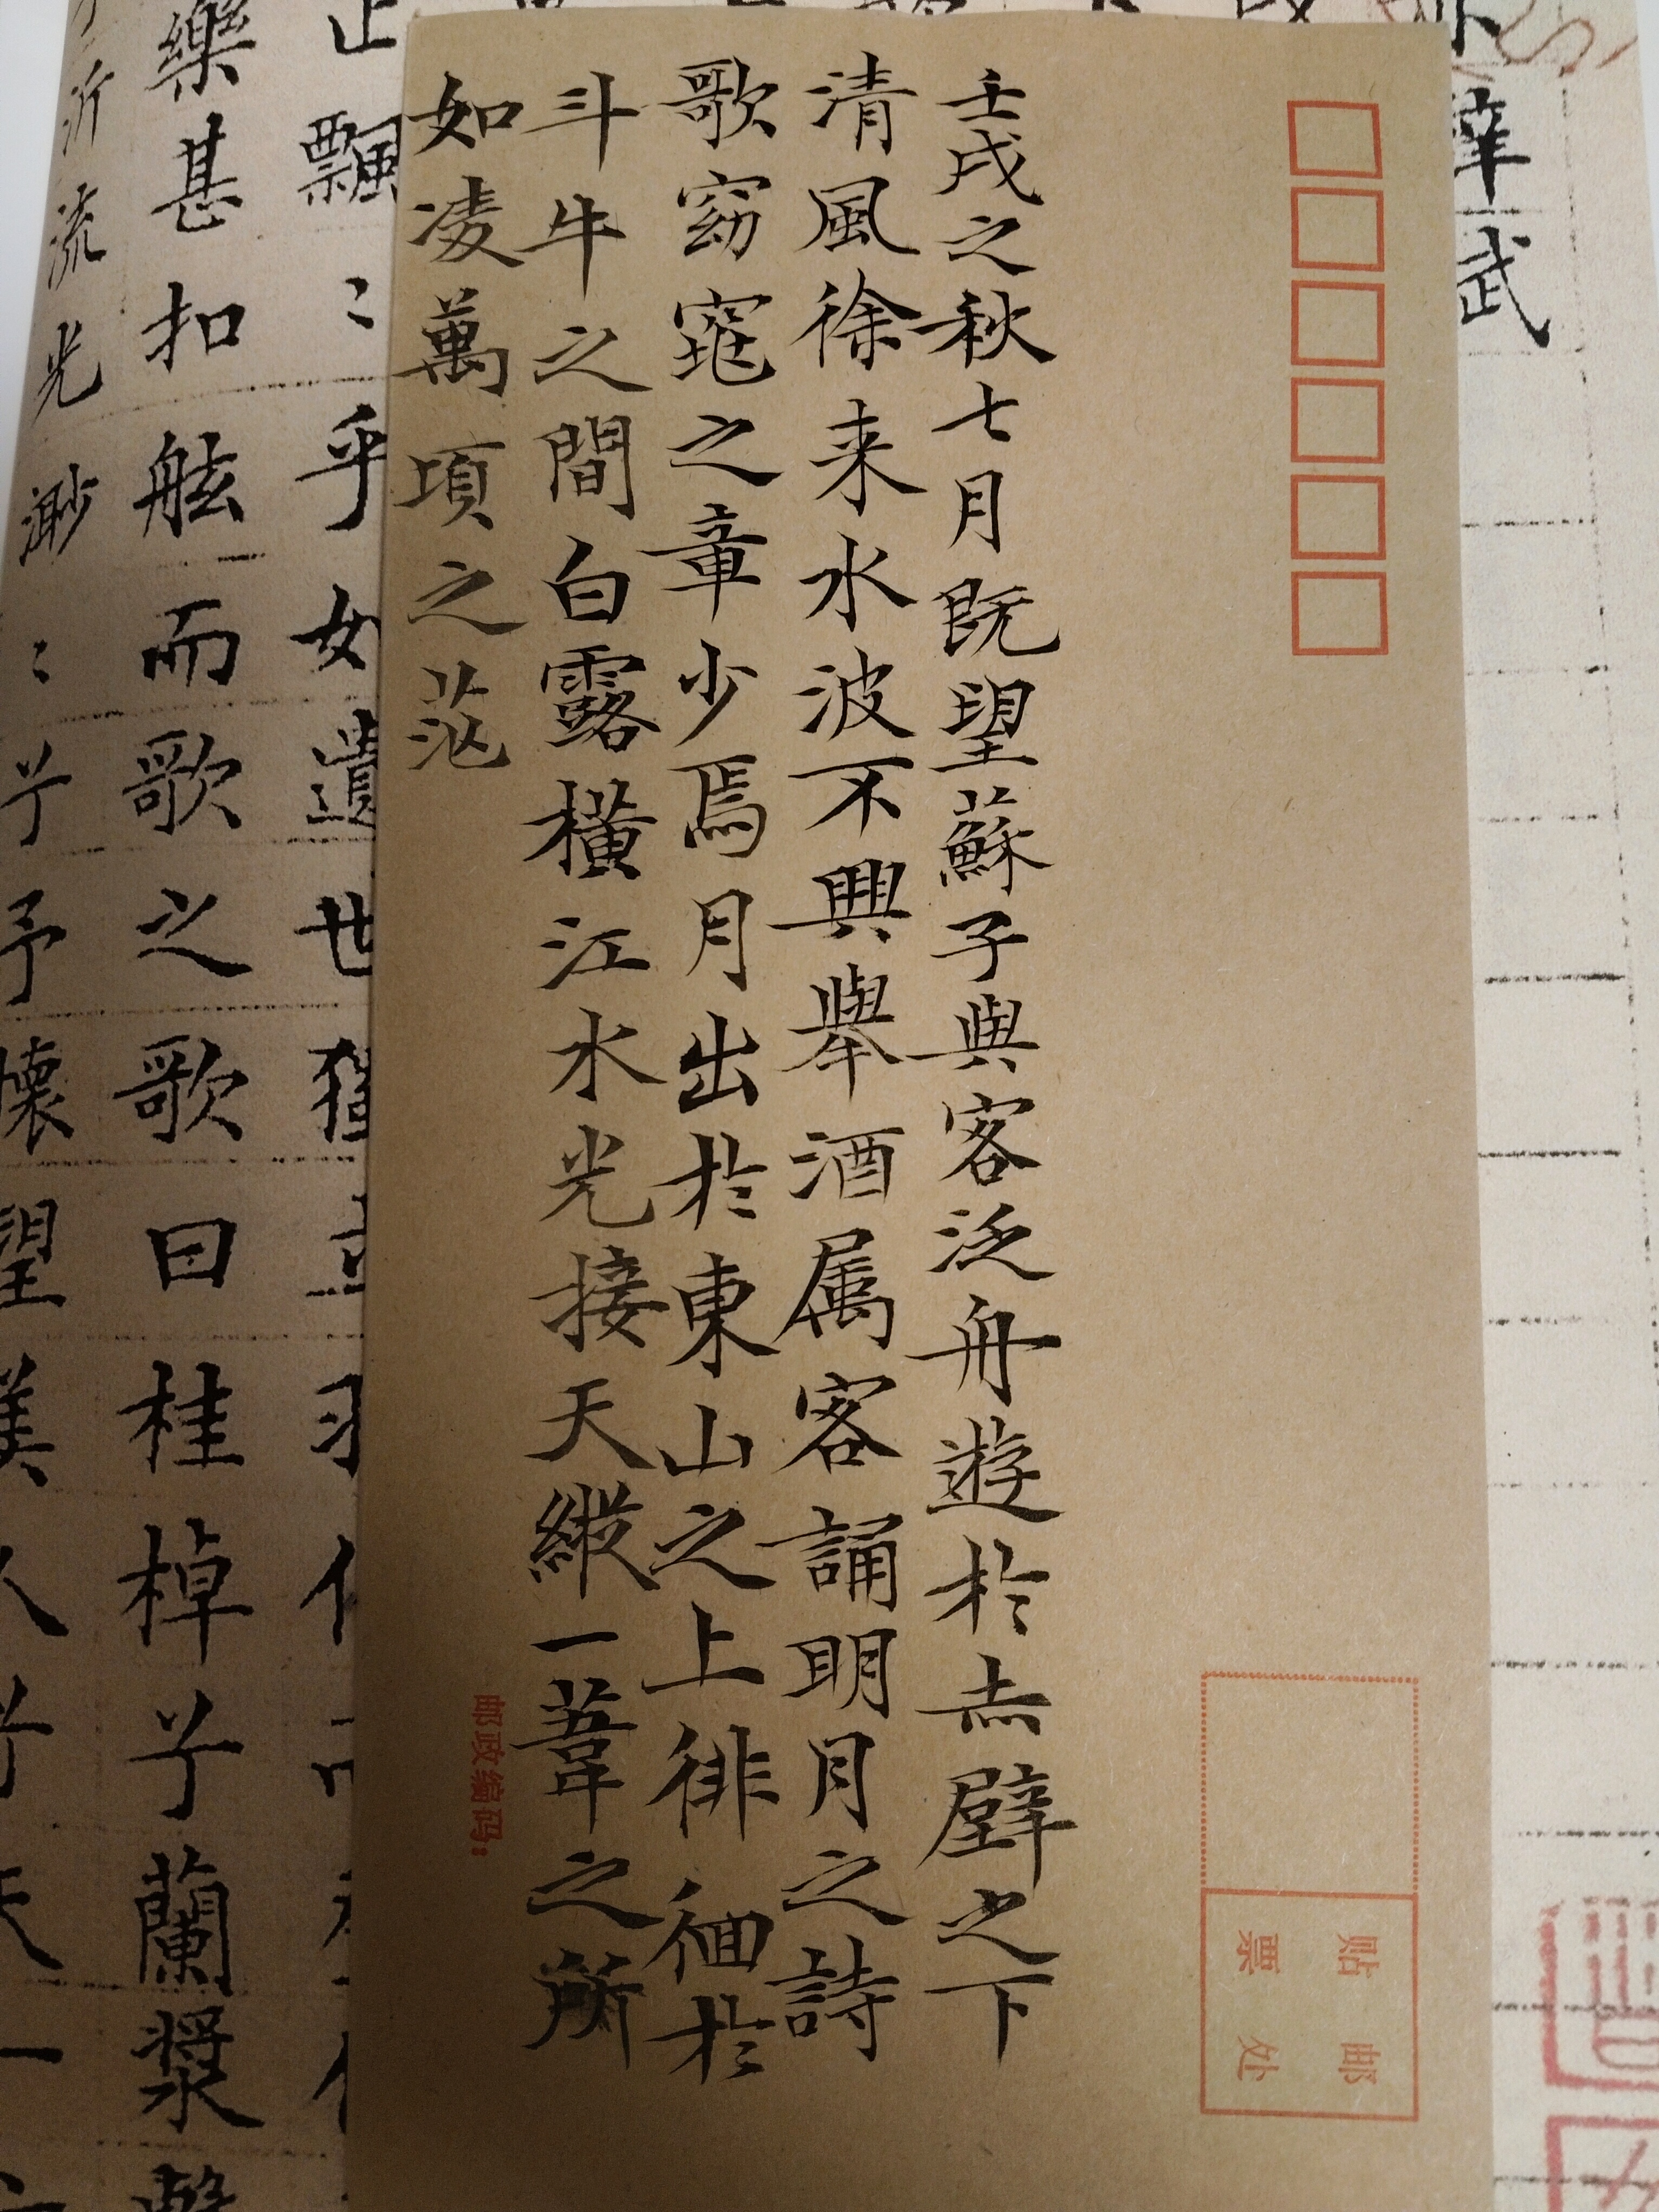 壬戌之秋七月既望蘇子與客泛舟遊於赤壁之下
清風徐来水波不興舉酒属客誦明月之詩
歌窈窕之章少焉月出於東山之上徘徊於
斗牛之間白露橫江水光接天縱一葦之所
如凌萬頃之茫
贴邮
票处
邮政编码：
止飄〻乎如遺世獨立羽
樂甚扣舷而歌之歌曰桂棹兮蘭槳擊
泝流光渺〻兮予懷望美人兮天一
武